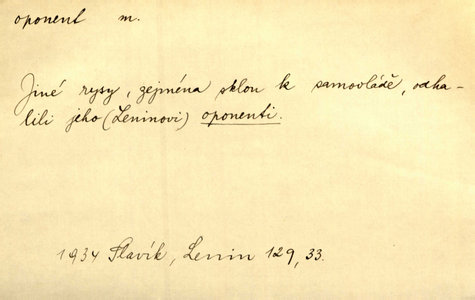 oponent m.
Jiné rysy, zejména sklon k samovládě, odha-
lili jeho (Leninovi) oponenti.
1934 Slavík, Lenin 129, 33.